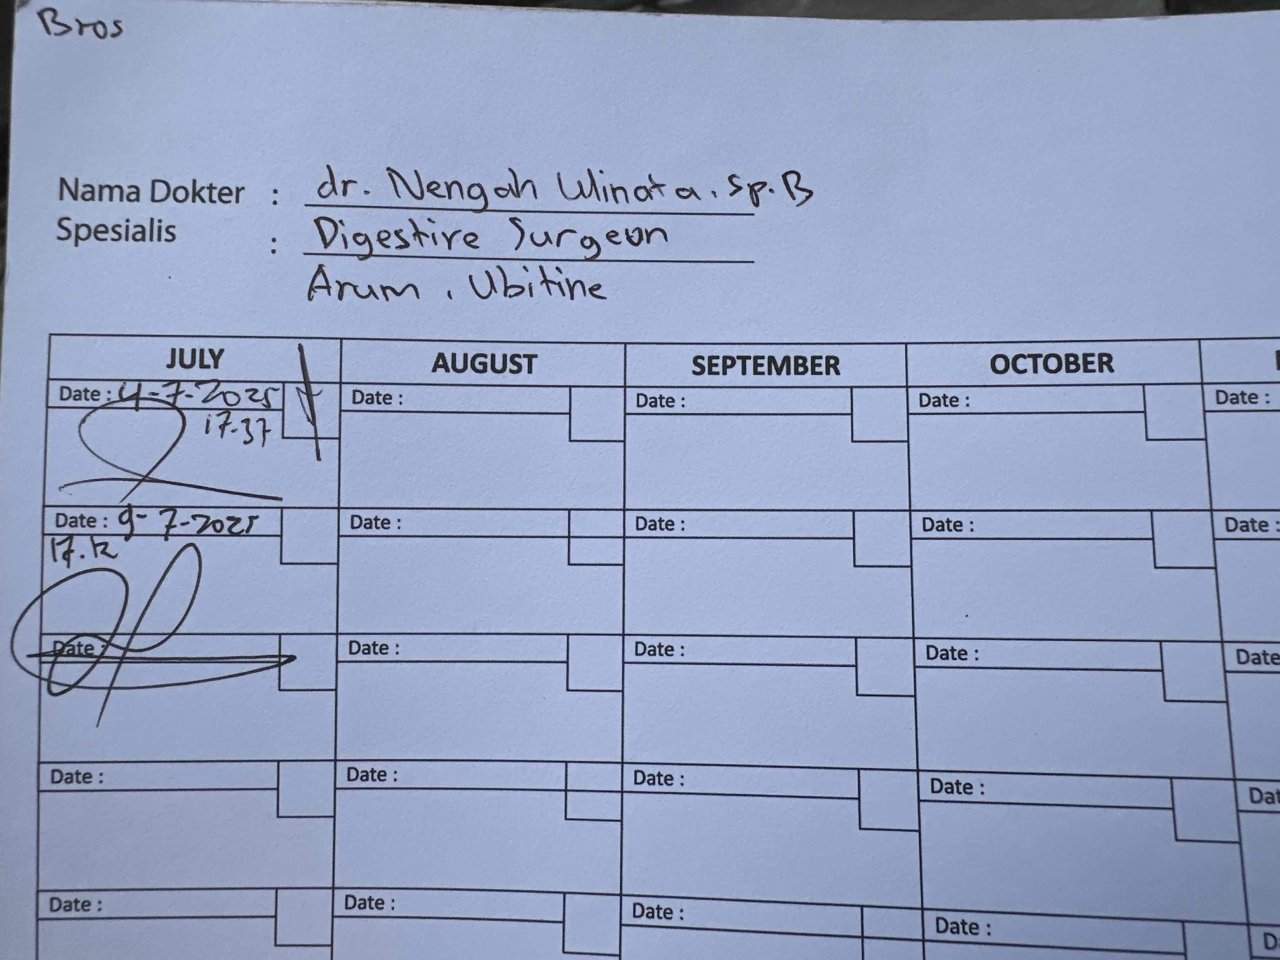 Bros
Nama Dokter : dr. Nengah Winata. Sp.B
Spesialis : Digestive Surgeon
Arum, Ubitine
JULY AUGUST SEPTEMBER OCTOBER
Date : 4-7-2025 Date : Date : Date : Date :
17.37
Date : 9-7-2025 Date : Date : Date : Date :
17.12
Date : Date : Date : Date : Date
Date : Date : Date : Date : Dat
Date : Date : Date : Date : D